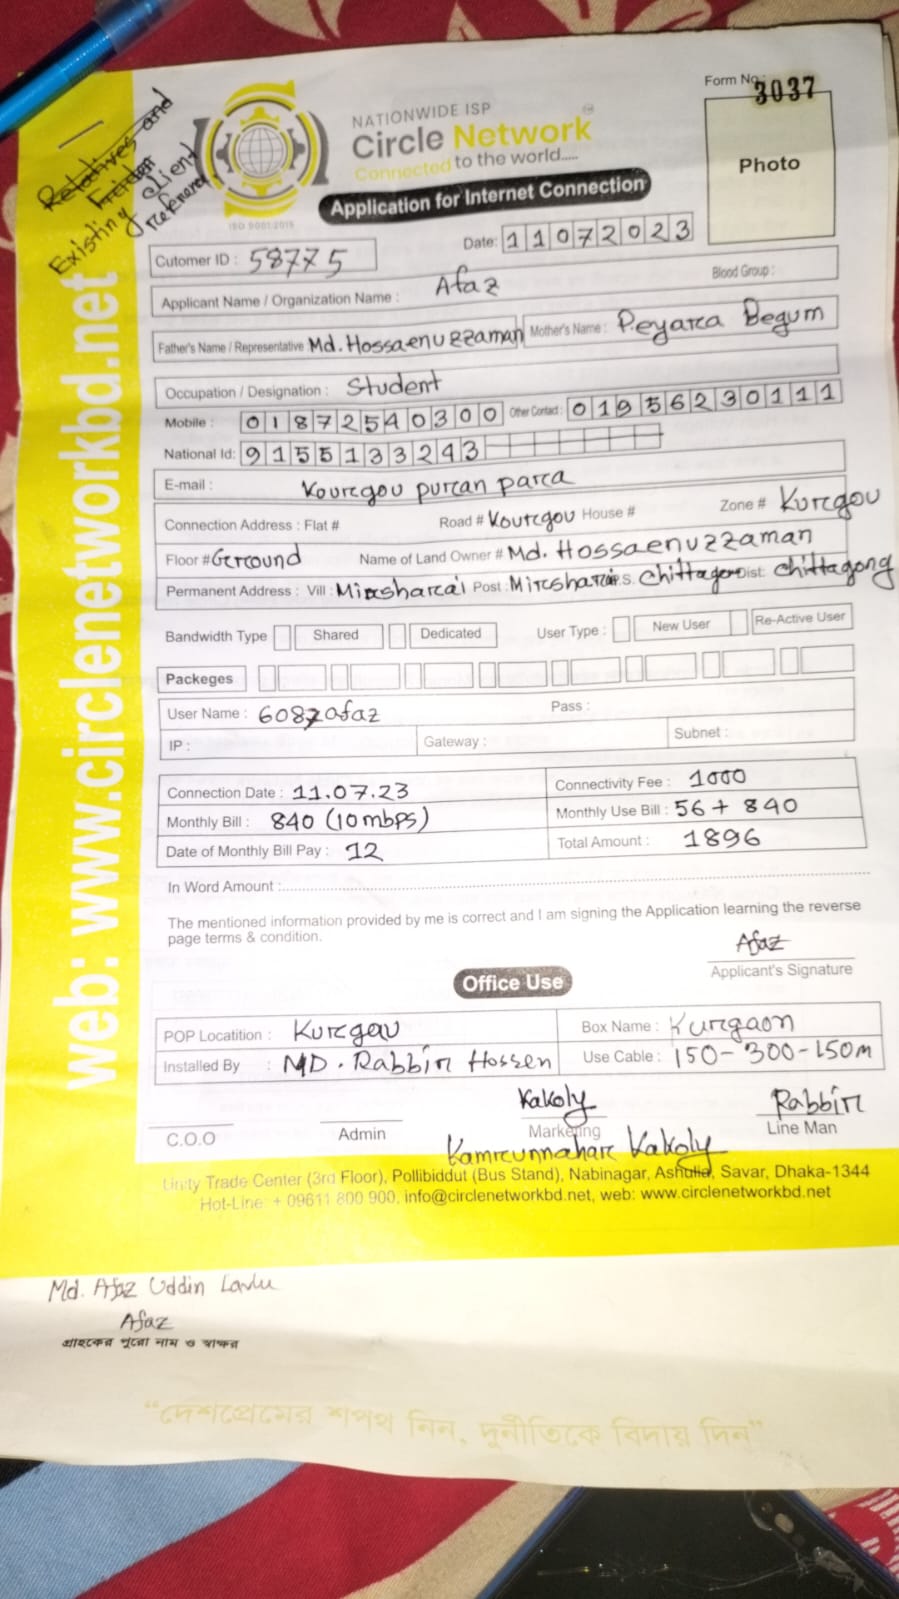 Form No.: 3037
Relatives and
Freiden
Existing client
reference
NATIONWIDE ISP
Circle Network
Connected to the world.....
ISO 9001:2015
Application for Internet Connection
Photo
Date: 11072023
Cutomer ID : 58775
Applicant Name / Organization Name : Afaz Blood Group :
Father's Name / Representative Md. Hossaenuzzaman Mother's Name : Peyara Begum
Occupation / Designation : Student
Mobile : 01872540300 Other Contact : 01956230111
National Id: 9155133243
E-mail : Kourgou puran para
Connection Address : Flat # Road # Kourgou House # Zone # Kurgou
Floor # Ground Name of Land Owner # Md. Hossaenuzzaman
Permanent Address : Vill : Mirsharai Post : Mirsharai P.S. Chittagon Dist: Chittagong
Bandwidth Type Shared Dedicated User Type : New User Re-Active User
Packeges
User Name : 6087afaz Pass :
IP : Gateway : Subnet :
Connection Date : 11.07.23 Connectivity Fee : 1000
Monthly Bill : 840 (10mbps) Monthly Use Bill : 56 + 840
Date of Monthly Bill Pay : 12 Total Amount : 1896
In Word Amount :
The mentioned information provided by me is correct and I am signing the Application learning the reverse
page terms & condition.
Afaz
Applicant's Signature
Office Use
POP Locatition : Kurgau Box Name : Kurgaon
Installed By : MD. Rabbir Hossen Use Cable : 150-300-150m
Kakoly Rabbir
C.O.O Admin Marketing Line Man
Kamrunnahar Kakoly
Unity Trade Center (3rd Floor), Pollibiddut (Bus Stand), Nabinagar, Ashulia, Savar, Dhaka-1344
Hot-Line: + 09611 800 900, info@circlenetworkbd.net, web: www.circlenetworkbd.net
web: www.circlenetworkbd.net
Md. Afaz Uddin Lavlu
Afaz
গ্রাহকের পুরো নাম ও স্বাক্ষর
“দেশপ্রেমের শপথ নিন, দুর্নীতিকে বিদায় দিন”